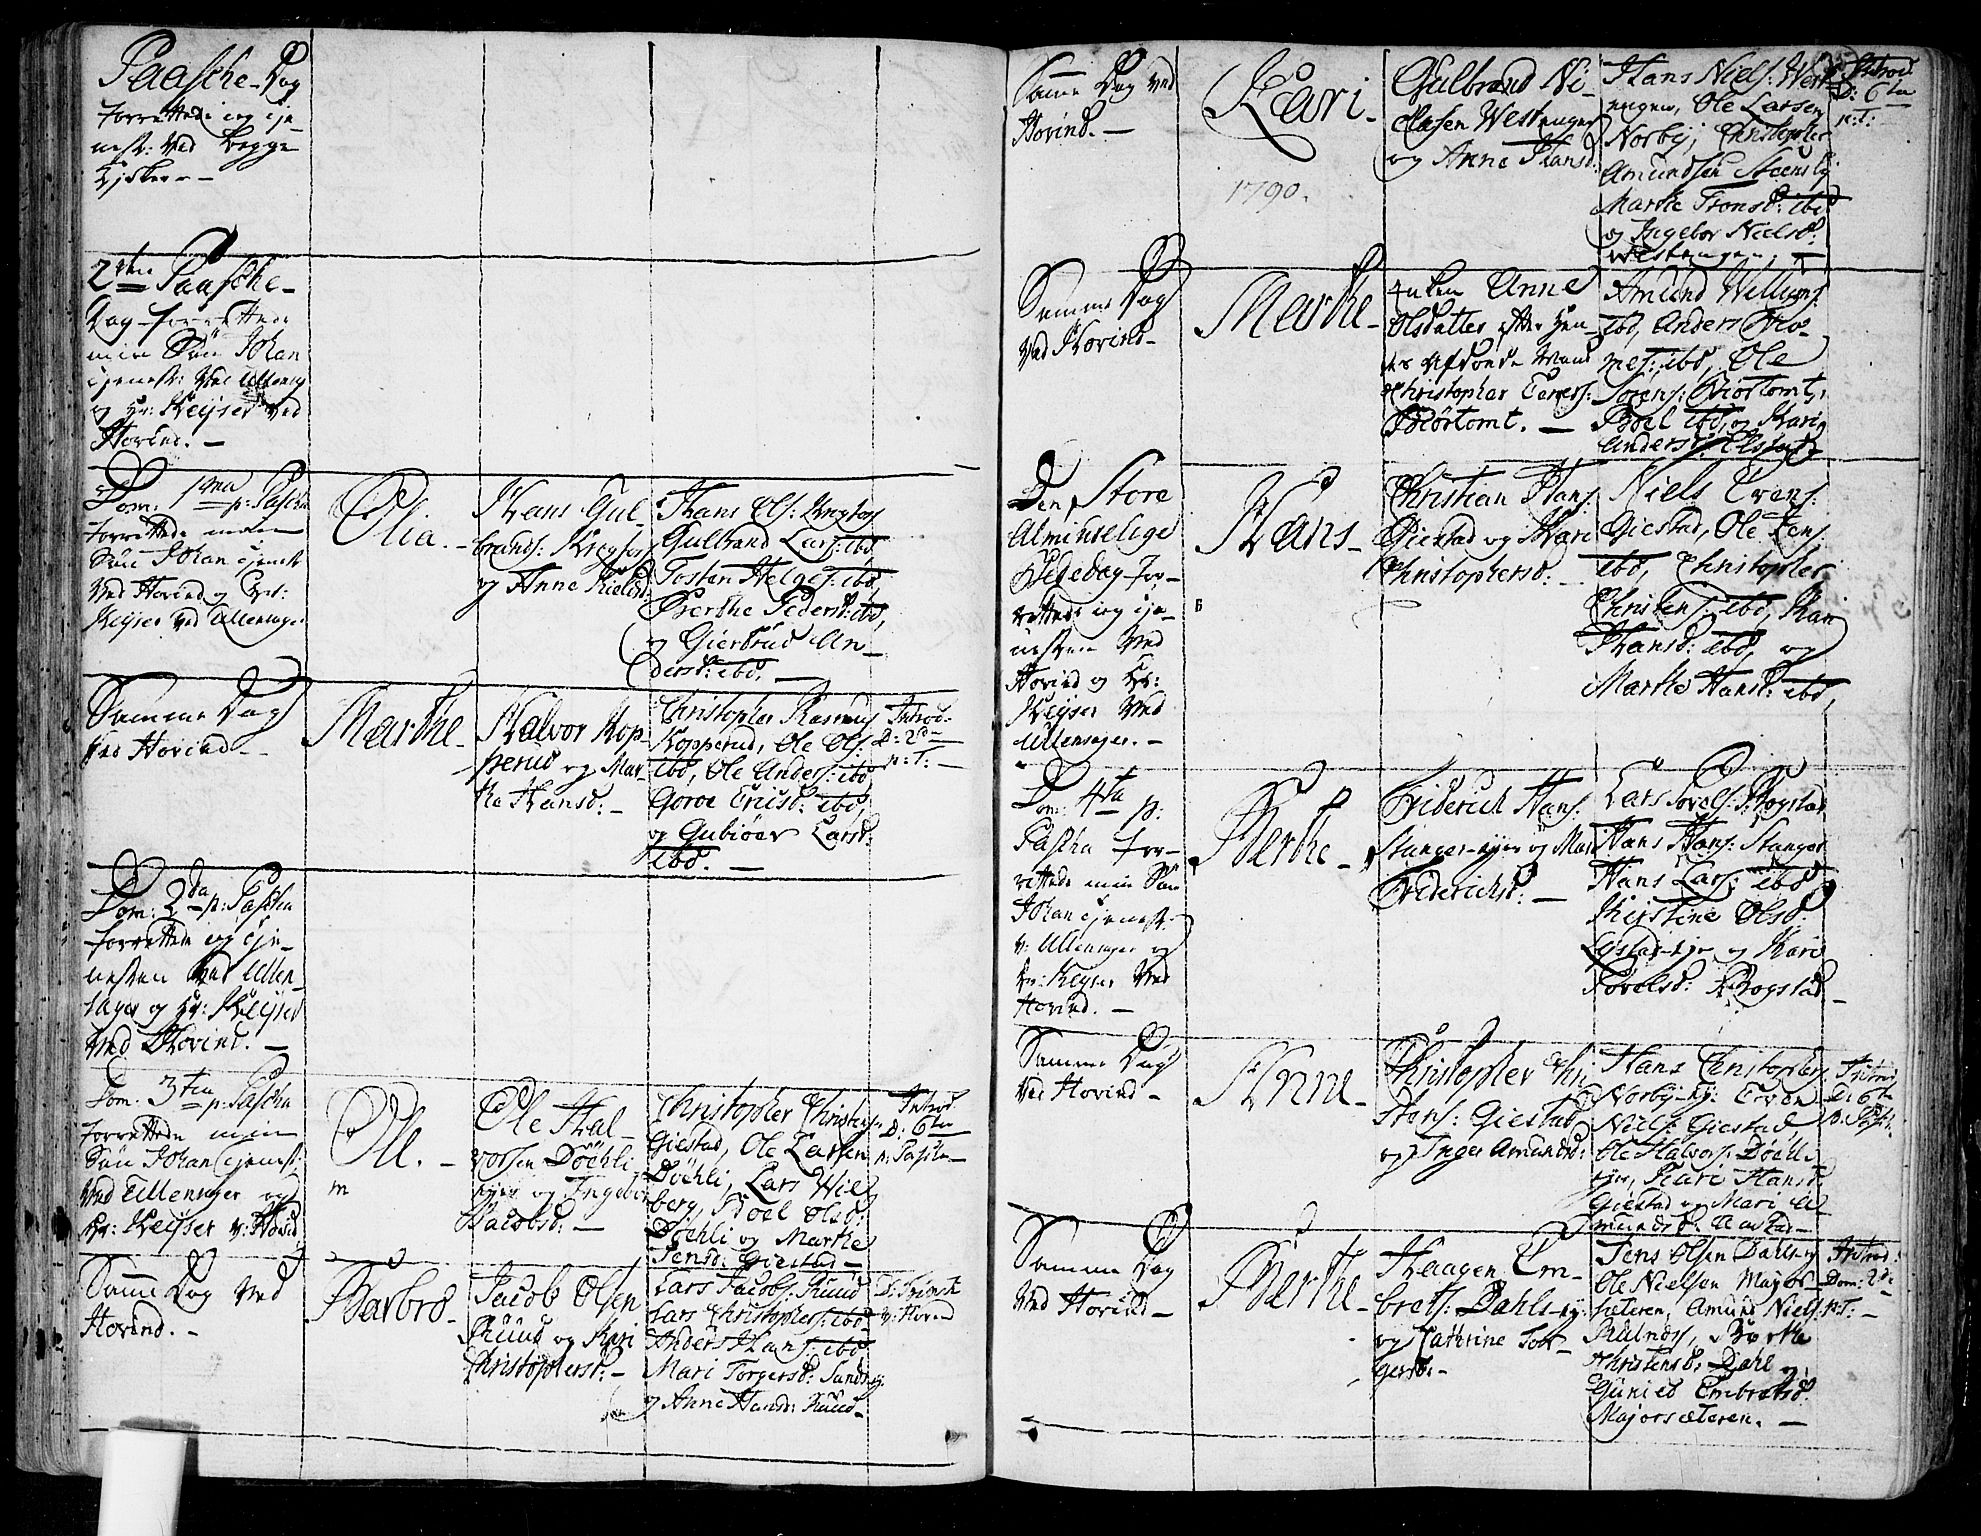 Paasche-Dag
forrettede ieg tje-
nest: ved begge
Kirker. -
2den Paasche-
Dag forrettede
min Søn Johan
tjenest: ved Ullensag:
og Hr: Keyser ved
Hovind. -
Dom: 1ma p: Pascha
forrettede min
Søn Johan tjenest:
ved Hovind og Hr:
Keyser ved Ullensager
Olia. -
Hans Gul-
brands:
og Anne
Hans Ols:
Gulbrand Lars: ibd
Tosten Helges: ibd,
Berthe Pedersd: ibd,
og Giertrud An-
dersd: ibd. -
Samme Dag
ved Hovind. -
Marthe -
Halvor Kop-
perud og Mar-
the Hansd. -
Christopher Rasmus:
Kopperud, Ole Ols:
ibd, Ole Anders: ibd
Goroe Ericsd: ibd,
og Gubiöer Larsd:
ibd. -
Introd:
D: 2da
p: T: -
Dom: 2da p: Pascha
forrettede ieg tje-
nesten ved Ullen-
sager og Hr: Keyser
ved Hovind. -
Dom: 3tia p: Pascha
forrettede min
Søn Johan tjenest:
ved Ullensager og
Hr: Keyser v: Hovind
Ole. -
m
Ole Hal-
vorsen Döehli-
ejer og Ingebor
Jacobsd: -
Christopher Christens:
Giestad, Ole Larsen
Döehli, Lars Wil-
berg, Boel Olsd:
Döehli og Marthe
Jensd: Giestad -
Introd:
D: 6ta
p: Pascha
Samme Dag ved
Hovind. -
Barbro -
Jacob Olsen
Ruud og Kari
Christophersd: -
Lars Jacobs: Ruud
Lars Christophers: ibd -
Anders Hans: ibd
Mari Torgersd: Sand
og Anne Hansd: Ruud -
D: Trinit:
v: Hovind
Samme Dag ved
Hovind. -
Kari -
1790.
Gulbrand Ni-
elsen Westenger
og Anne Hansd:
Hans Niels: West-
engen, Ole Larsen
Norby, Christopher
Amundsen Steensby
Marthe Tronsd: ibd
og Ingebor Nielsd:
Westengen. -
Introd:
D: 6ta
p: T:
Samme Dag
ved Hovind -
Marthe -
Enken Anne
Olsdatter efter hen-
des afdöde Mand
Christopher Evers:
Biörtomt. -
Amund Willums:
ibd, Anders Tho-
mes: ibd, Ole
Sörens: Biörtomt,
Boel ibd, og Kari
Andersd: Elstad -
Den Store
Almindelige
Bededag for-
rettede ieg tje-
nesten ved
Hovind og Hr:
Keyser ved
Ullensager. -
Hans -
Christian Hans:
Giestad og Mari
Christophersd: -
Niels Evens:
Giestad, Ole Jens:
ibd, Christopher
Christens: ibd, Kari
Hansd: ibd, og
Marthe Hansd: ibd,
Dom: 4ta p:
Pascha for-
rettede min Søn
Johan tjenest:
v: Ullensager og
Hr: Keyser ved
Hovind. -
Berthe -
Friderich Hans:
Stanger-ejer og Mari
Friderichsd: -
Lars Povels: Bogstad
Hans Hans: Stanger
Hans Lars: ibd
Kirstine Olsd:
og Kari
Povelsd: Bogstad -
Samme Dag
ved Hovind -
Anne -
Christopher Chri-
stens: Giestad
og Inger Amundsd:
Hans Christophers:
Norby-ej: Even
Niels: Giestad
Ole Halvors: Döehli-
ejer, Kari Hansd:
Giestad og Mari A-
mundsd:
Introd:
D: 6ta
p: Pasch:
Samme Dag
ved Hovind -
Berthe -
Haagen Em-
brets: Dahls-ej:
og Cathrine Tost-
gersd: -
Jens Olsen Dahls-ej
Ole Nielsen Major-
sæteren, Amund Niels:
Kulnes, Birthe
Christensd: Dahl og
Gunild Embretsd:
Majorsæteren. -
Introd:
Dom: 2da
p: T: -